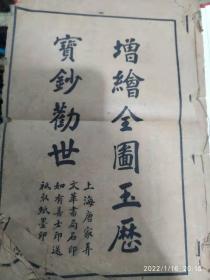 增繪全圖玉歷
寶鈔勸世
上海唐家弄
文華書局石印
如有善士印送
祇取紙墨印
2022/1/16 20:16